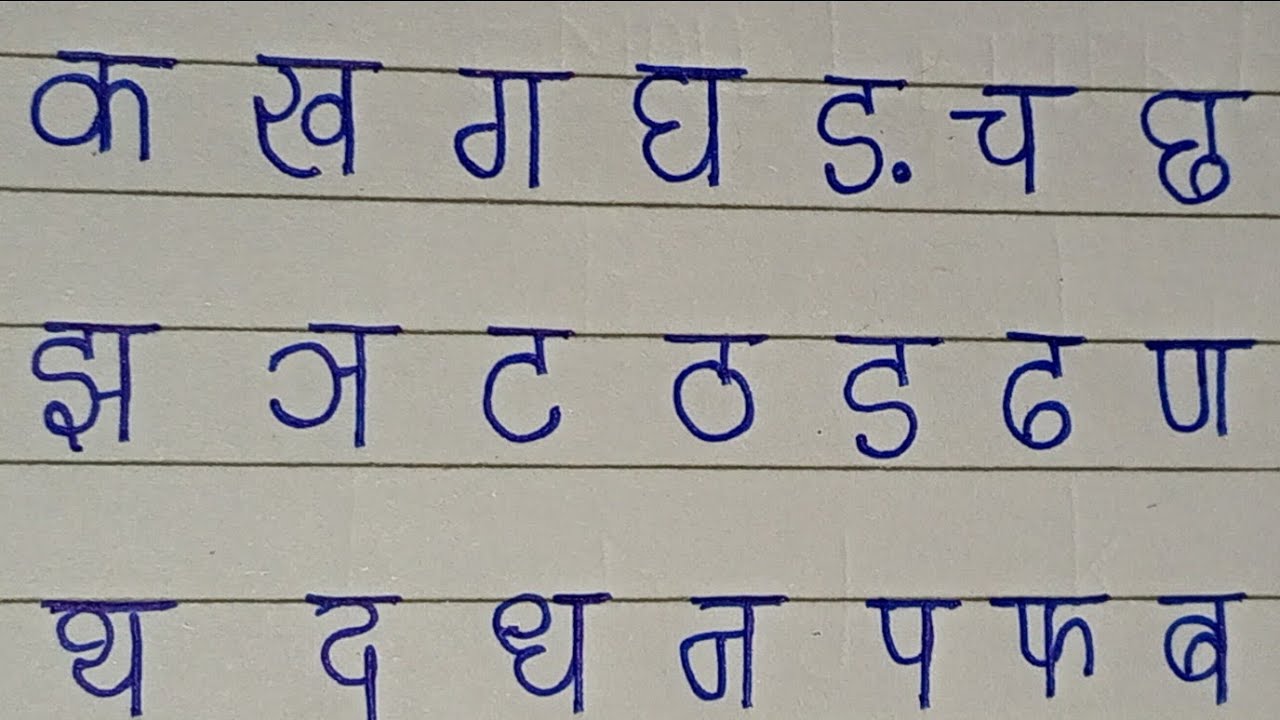 क ख ग घ ङ च छ
झ ञ ट ठ ड ढ ण
थ द ध न प फ ब